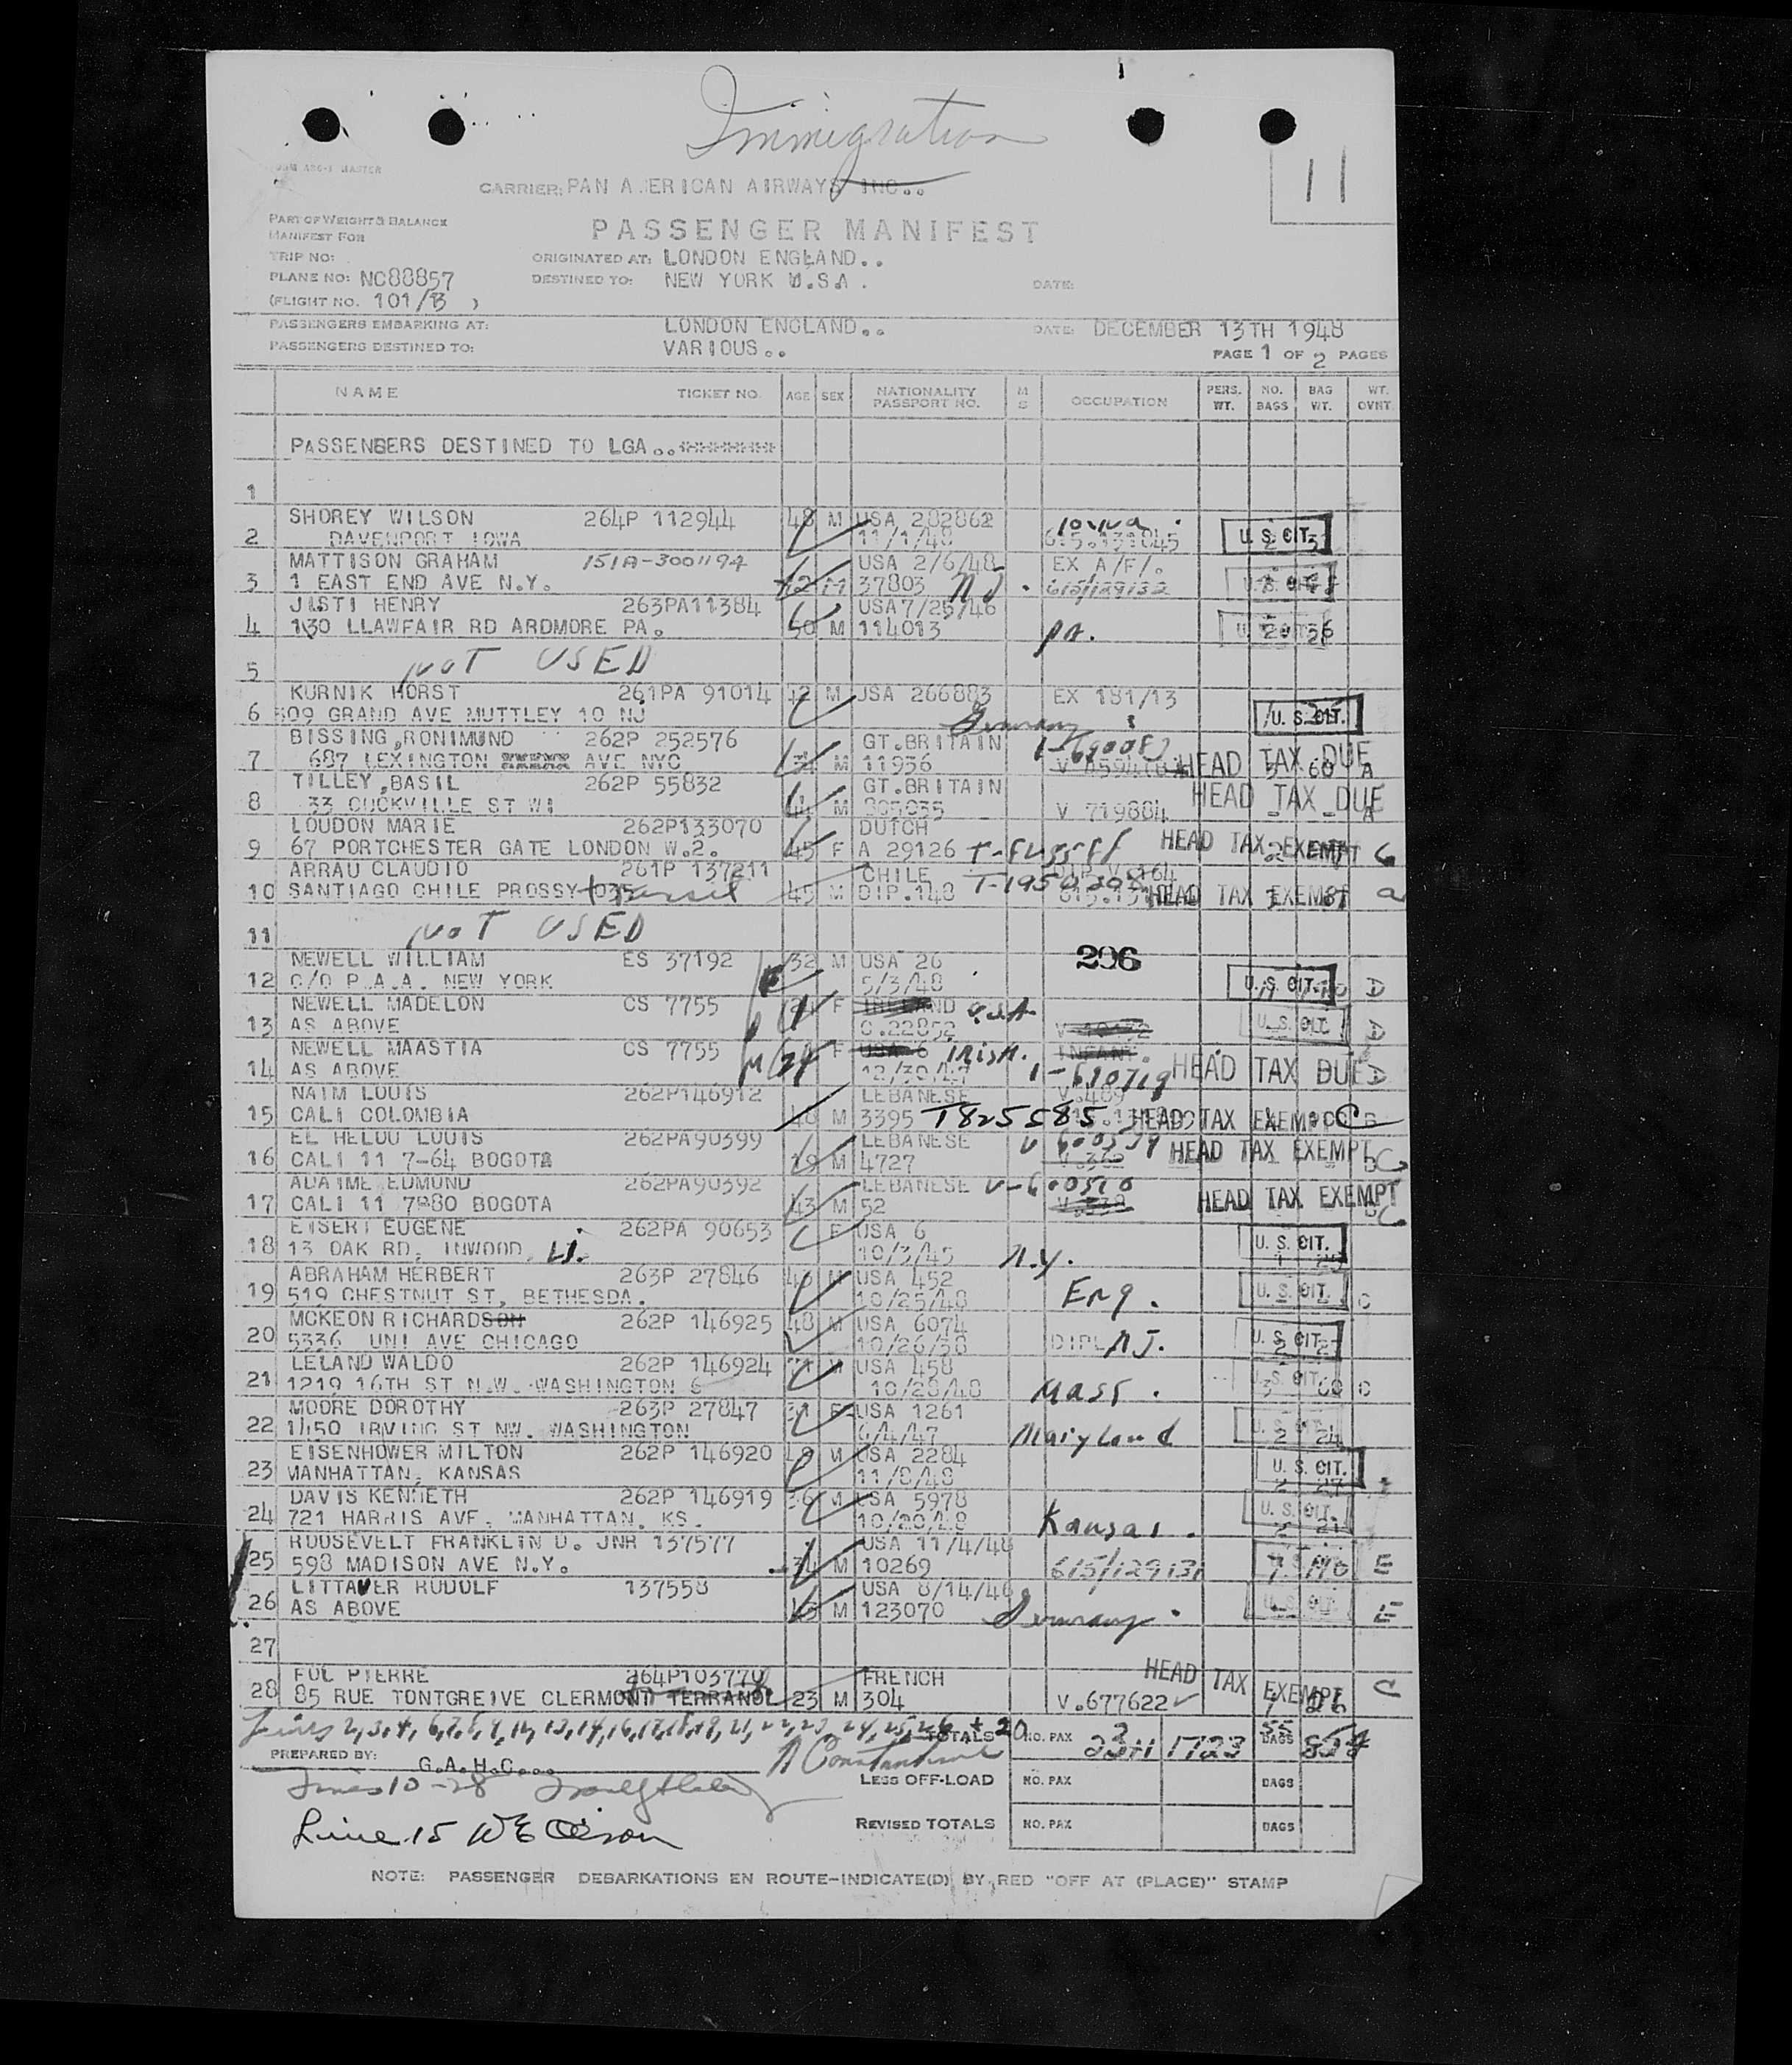 Immigration
11
CARRIER: PAN A.ERICAN AIRWAYS INC..
PART OF WEIGHT & BALANCE
MANIFEST FOR
PASSENGER MANIFEST
TRIP NO:
ORIGINATED AT: LONDON ENGLAND..
PLANE NO: NC88857
DESTINED TO: NEW YORK U.S.A.
DATE:
(FLIGHT NO. 101/B )
PASSENGERS EMBARKING AT: LONDON ENGLAND.. DATE: DECEMBER 13TH 1948
PASSENGERS DESTINED TO: VARIOUS..
PAGE 1 OF 2 PAGES
NAME TICKET NO. AGE SEX NATIONALITY PASSPORT NO. M S OCCUPATION PERS. WT. NO. BAGS BAG WT. WT. OVNT.
PASSENGERS DESTINED TO LGA..********
1
SHOREY WILSON 264P 112944 48 M USA 282862 Iowa
2 DAVENPORT IOWA 11/1/48 615.131845 U. S. CIT.
MATTISON GRAHAM 151A-3001194 USA 2/6/48 EX A/F/.
3 1 EAST END AVE N.Y. 42 M 37803 NJ. 615/129132
JISTI HENRY 263PA11384 USA7/25/46
4 130 LLAWFAIR RD ARDMORE PA. 50 M 114013 PA.
5 NOT USED
KURNIK HORST 261PA 91014 42 M USA 266883 EX 181/13
6 509 GRAND AVE MUTTLEY 10 NJ Germany U. S. CIT.
BISSING,RONIMUND 262P 252576 GT.BRITAIN 1-690082
7 687 LEXINGTON AVE NYC M 11936 HEAD TAX DUE A
TILLEY,BASIL 262P 55832 GT.BRITAIN HEAD TAX DUE
8 33 CUCKVILLE ST W1 44 M 805035 V 719884 A
LOUDON MARIE 262P133070 DUTCH
9 67 PORTCHESTER GATE LONDON W.2. 45 F A 29126 HEAD TAX EXEMPT C
ARRAU CLAUDIO 261P 137211 CHILE
10 SANTIAGO CHILE PROSSY 45 M DIP.148 HEAD TAX EXEMPT a
11 NOT USED
NEWELL WILLIAM ES 37192 32 M USA 26 296
12 C/O P.A.A. NEW YORK 5/3/48 U. S. CIT. D
NEWELL MADELON CS 7755 F USA
13 AS ABOVE 0.22852 U. S. CIT. D
NEWELL MAASTIA CS 7755 24 F USA 6 IRISH. INFANT.
14 AS ABOVE 12/30/47 1-610719 HEAD TAX DUE D
NAIM LOUIS 262P146912 LEBANESE V.489
15 CALI COLOMBIA 48 M 3395 T825585 HEAD TAX EXEMPT C
EL HELOU LOUIS 262PA90399 LEBANESE
16 CALI 11 7-64 BOGOTA 19 M 4727 HEAD TAX EXEMPT C
ADAIME EDMUND 262PA90392 LEBANESE V-600510
17 CALI 11 7-80 BOGOTA 43 M 52 HEAD TAX EXEMPT C
EISERT EUGENE 262PA 90653 USA 6
18 13 OAK RD, INWOOD, LI. 10/3/45 N.Y. U. S. CIT.
ABRAHAM HERBERT 263P 27846 USA 452
19 519 CHESTNUT ST, BETHESDA. 10/25/48 Eng. U. S. CIT. C
MCKEON RICHARDSON 262P 146925 48 M USA 6074
20 5336 UNI AVE CHICAGO 10/26/38 DIPL NJ. U. S CIT.
LELAND WALDO 262P 146924 USA 458
21 1219 16TH ST N.W. WASHINGTON 6 10/28/48 Mass. C
MOORE DOROTHY 263P 27847 F USA 1261
22 1450 IRVING ST NW. WASHINGTON 6/4/47 Maryland
EISENHOWER MILTON 262P 146920 M USA 2284
23 MANHATTAN, KANSAS 11/8/48 U. S. CIT.
DAVIS KENNETH 262P 146919 36 M USA 5978
24 721 HARRIS AVE. MANHATTAN. KS. 10/20/48 Kansas. U. S. CIT.
ROOSEVELT FRANKLIN D. JNR 137577 USA 11/4/48
25 598 MADISON AVE N.Y. 34 M 10269 615/129131 E
LITTAUER RUDOLF 137558 USA 8/14/46
26 AS ABOVE M 123070 Germany. E
27
FOL PIERRE 264P103770 FRENCH HEAD TAX EXEMPT C
28 85 RUE TONTGREIVE CLERMONT TERRANOL 23 M 304 V.677622
TOTALS NO. PAX 23+1 1723 55 BAGS
PREPARED BY: G.A.H.C...
LESS OFF-LOAD NO. PAX BAGS
Lines 10-28
Line 15 W E Olson
REVISED TOTALS NO. PAX BAGS
NOTE: PASSENGER DEBARKATIONS EN ROUTE-INDICATE(D) BY RED "OFF AT (PLACE)" STAMP